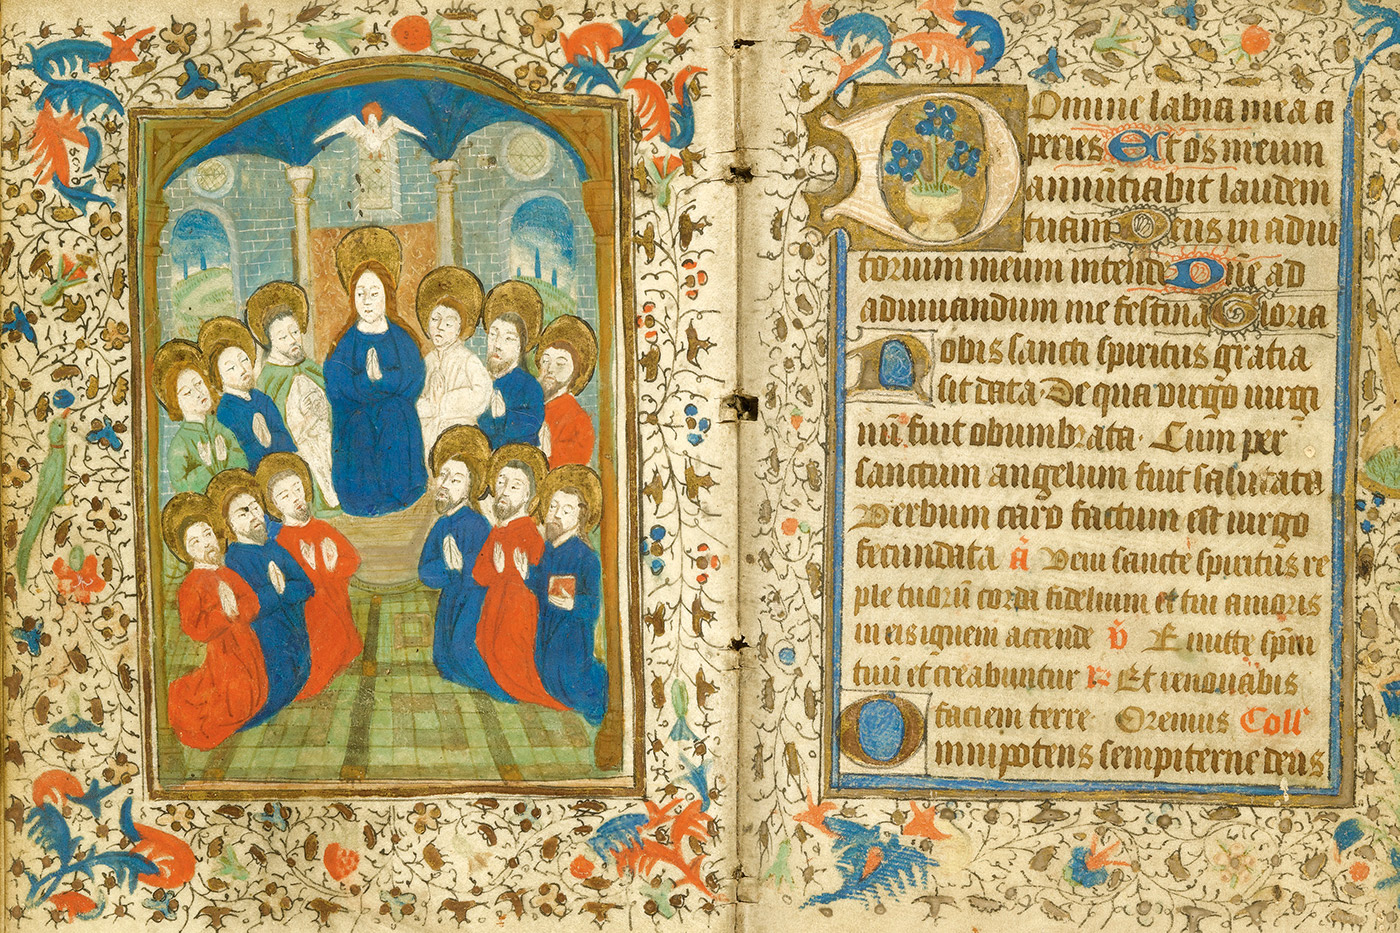 Domine labia mea a
peries Et os meum
annūtiabit laudem
tuam Deus in adiu
torium meum intende Dn̄e ad
adiuuandum me festina Gloria
Nobis sancti spiritus gratia
sit data De qua virgo uirgi
nū fuit obumbrata. Cum per
sanctum angelum fuit salutata
Verbum caro factum est uirgo
fecundata a̅ Veni sancte spiritus re
ple tuorū corda fidelium et tui amoris
in eis ignem accende v̅ Emitte sp̄m
tuū et creabuntur R Et renouabis
faciem terre. Oremus Coll
Omnipotens sempiterne deus